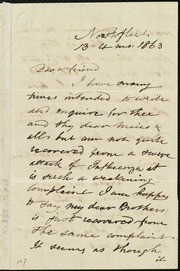 Northfleet
13 - 4 mo. 1863
Dear friend
I have many
times intended to write
and enquire for thee
and thy dear Nieces &
all but am not quite
recovered from a severe
attack of Influenza, it
is such a weakening
complaint I am happy
to say my dear Brother
is just recovered from
the same complaint
It seems as though
it